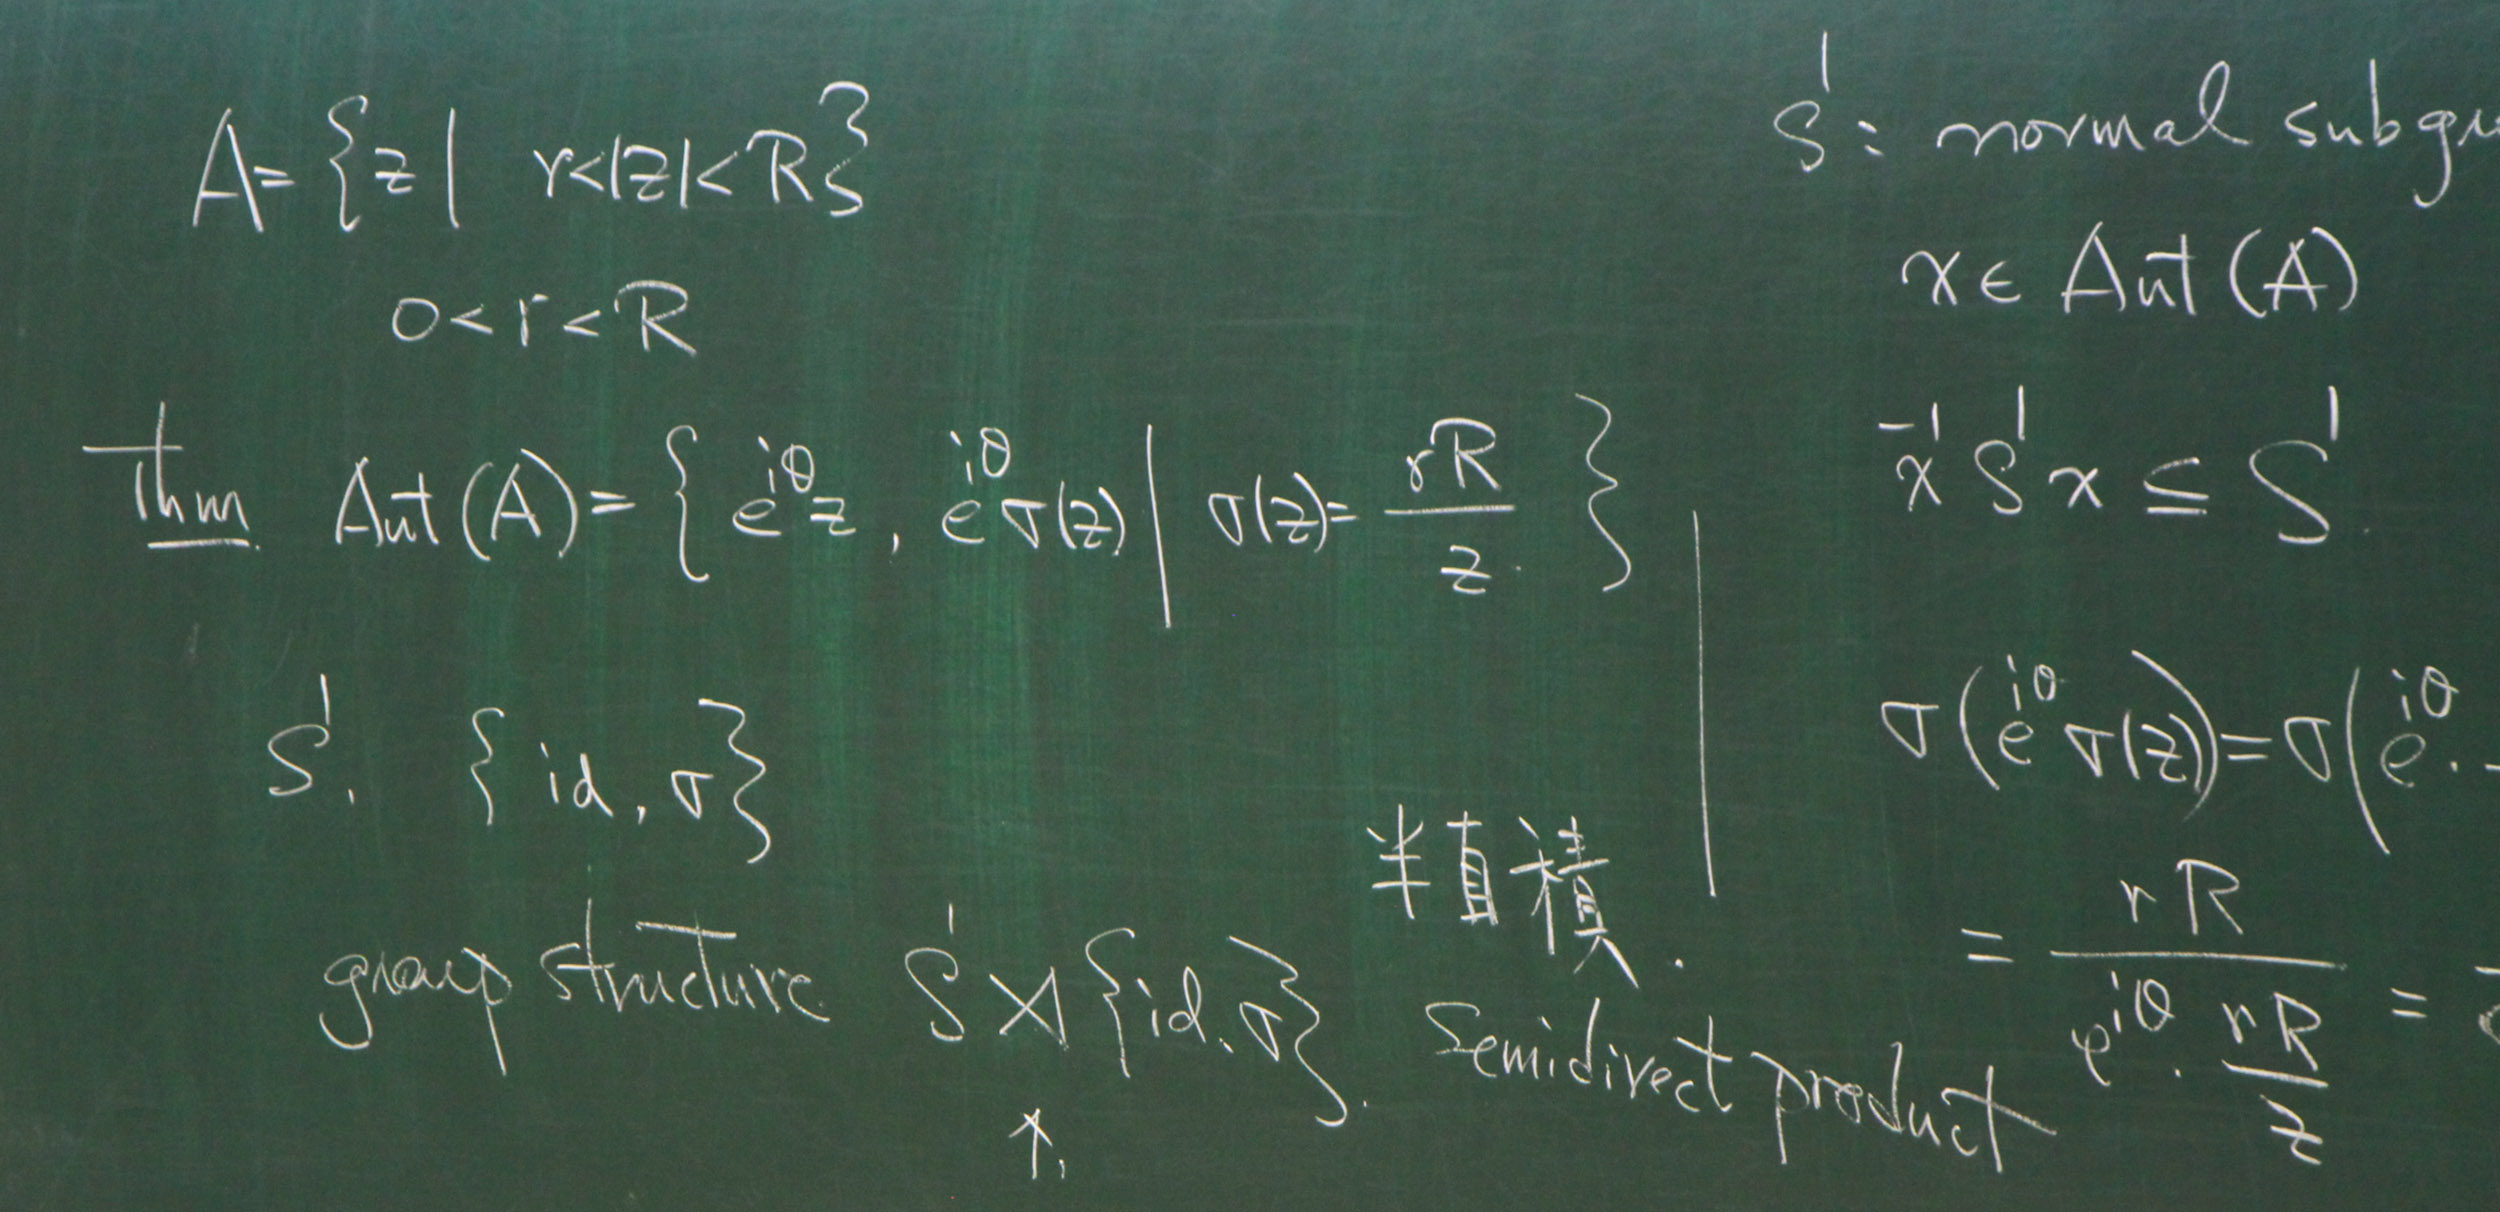 A = {z | r<|z|<R}
0<r<R
Thm Aut(A) = {e^{iθ}z, e^{iθ}σ(z) | σ(z) = rR/z}
S¹, {id, σ}
半直積.
group structure S¹⋊{id, σ}. Semidirect product
↑
S¹: normal subgr
x∈Aut(A)
x⁻¹S¹x ⊆ S¹.
σ(e^{iθ}σ(z)) = σ(e^{iθ}·
= rR/(e^{iθ}·rR/z) =